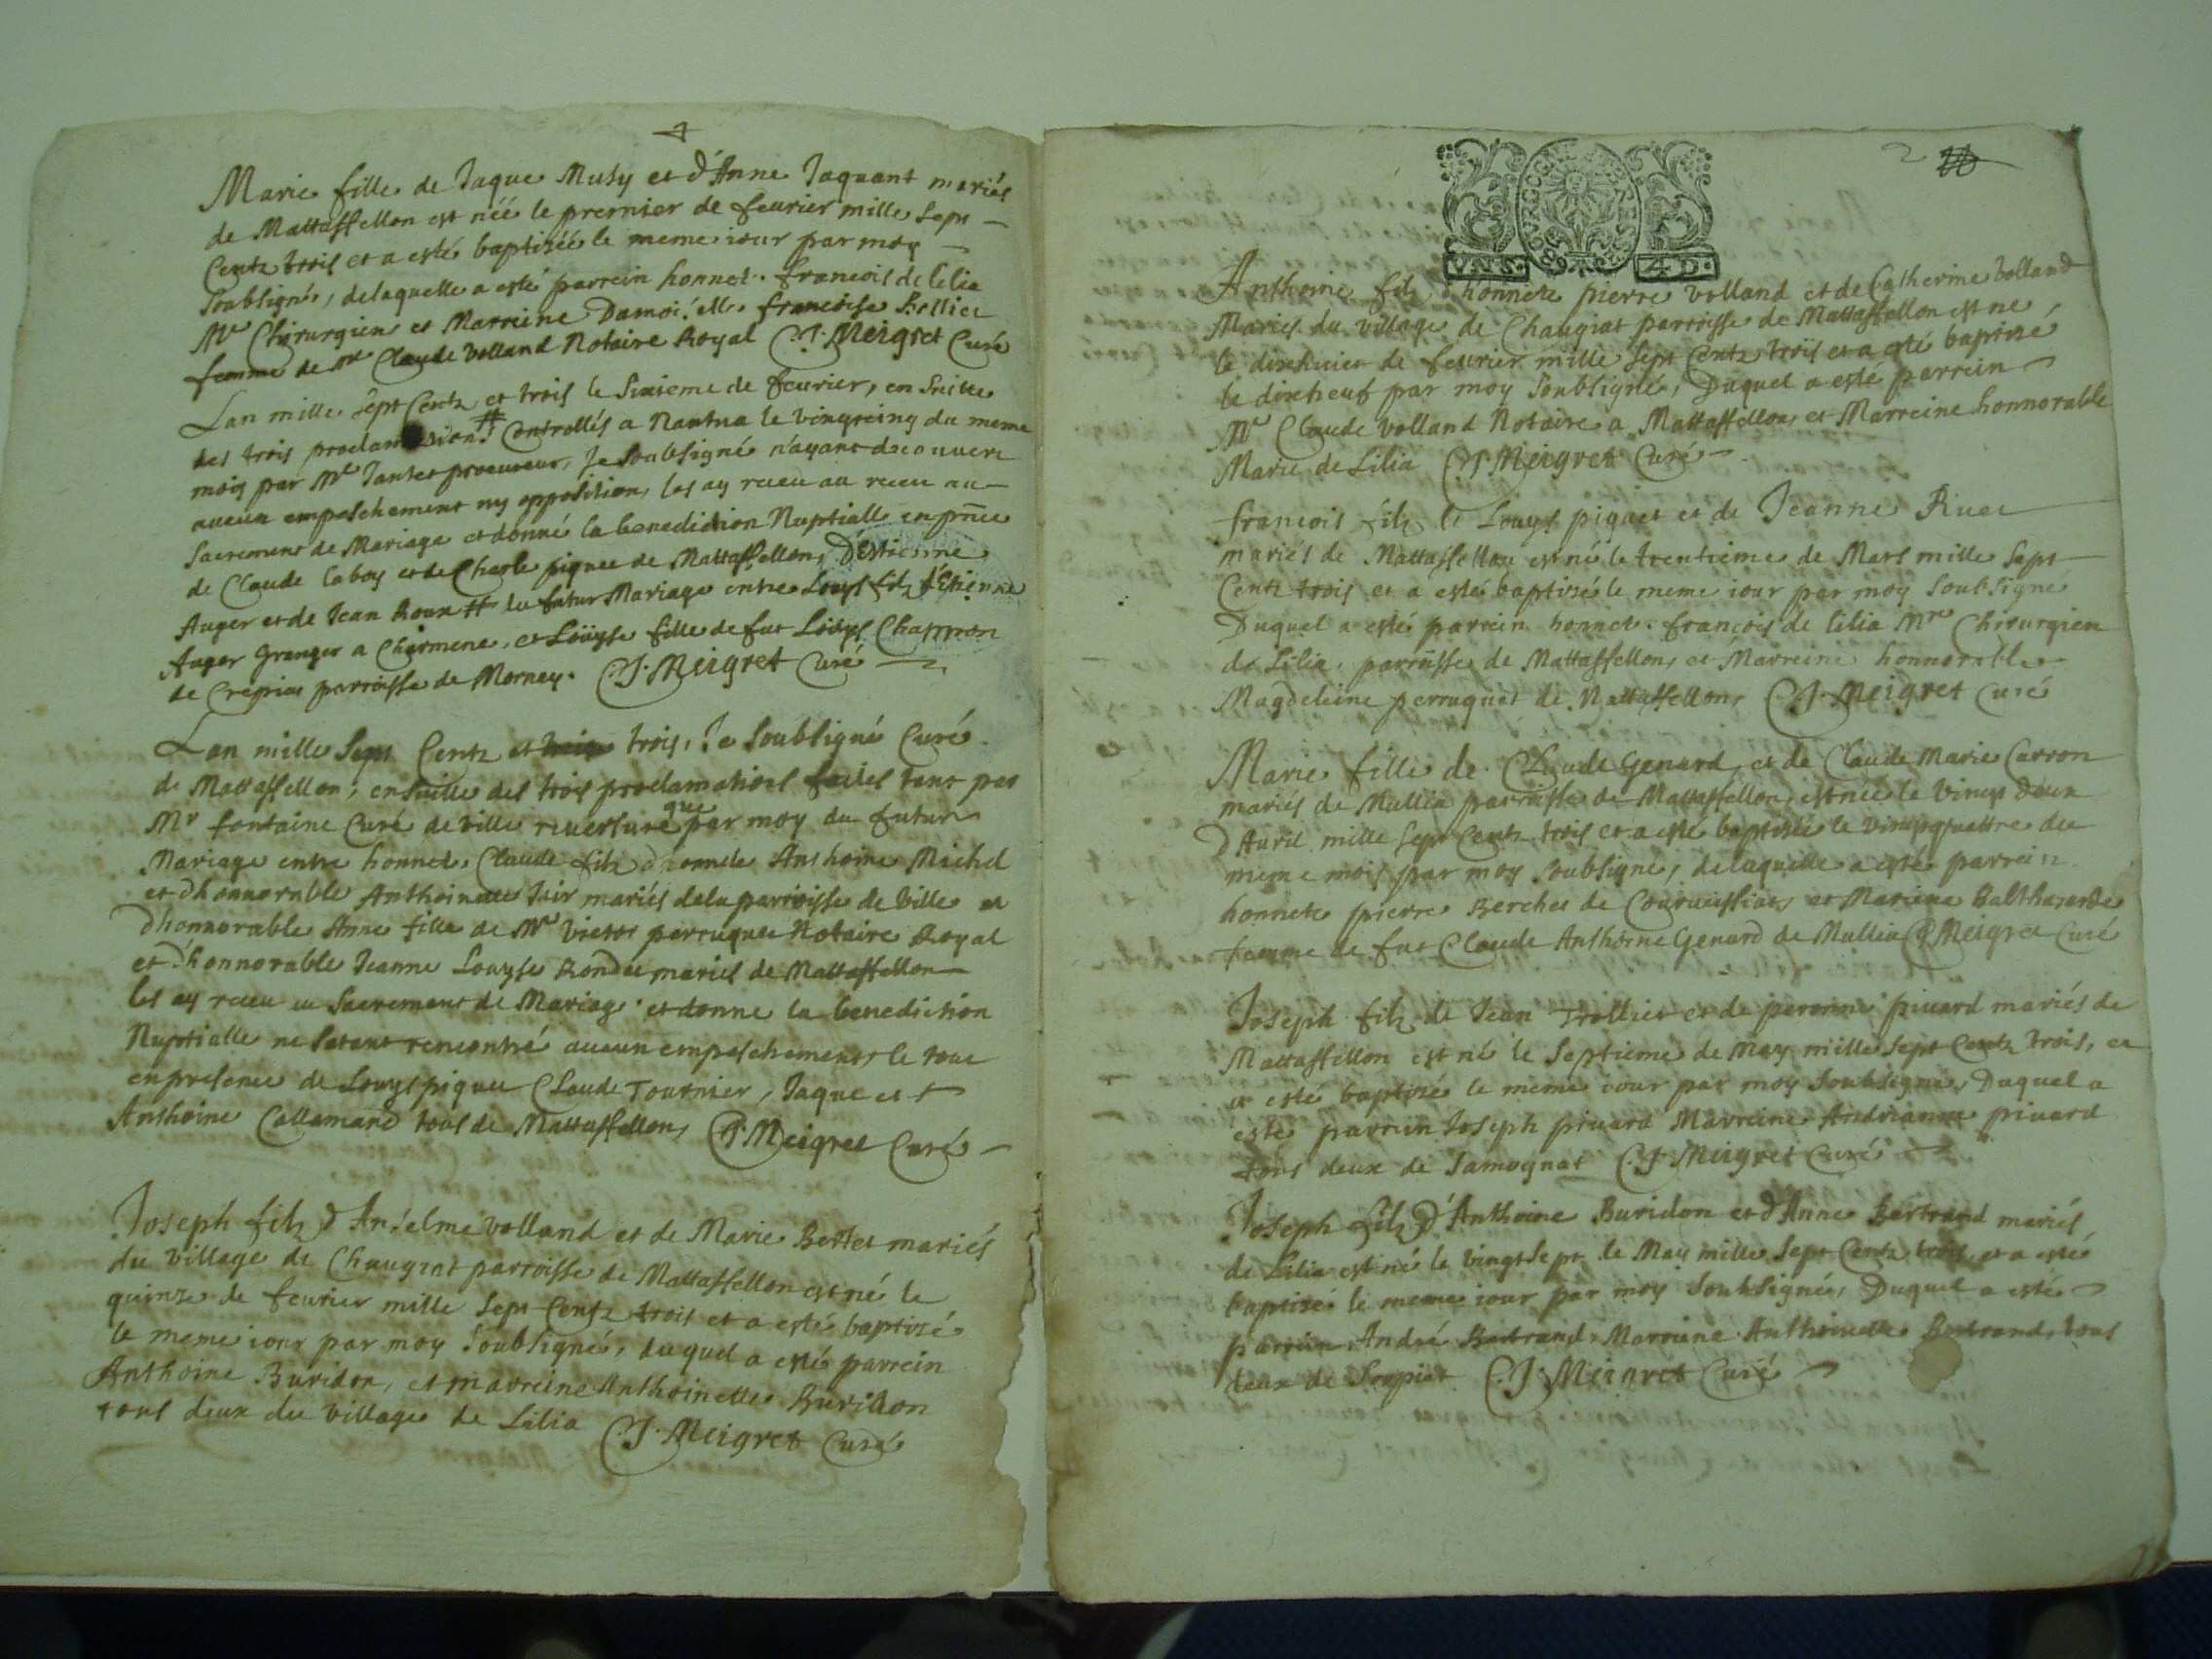 4
Marie fille de Jaque Musy et d'Anne Jaquant mariés
de Mattaffellon est néé le premier de feurier mille Sept
Centz trois et a esté baptizéé le meme iour par moy
Soubsigné, delaquelle a esté parrein honnet. francois de lilia
Mre Chirurgien et Marreine Damoiselle francoise Bellier
femme de Mr Claude Volland Notaire Royal C.J. Meigret Curé
Lan mille Sept Centz et trois le Sixieme de feurier, en Suitte
des trois proclamations # Controllés a Nantua le Vingtcinq du meme
mois par Mre Jantet procureur, Je Soubsigné n'ayant decouvert
aucun empeschement ny opposition, les ay receu au receu au
Sacrement de Mariage et donné la benediction Nuptialle en pnce
de Claude laboy et de Charle piquet de Mattaffellon, D'Estienne
Auger et de Jean Roux # du futur Mariage entre Louys filz d'Etienne
Auger Granger a Charmene, et Loüyse fille de fut Loüys Chappon
de Crepiat parroisse de Mornay. C.J. Meigret Curé
Lan mille Sept Centz et trois, Je Soubsigné Curé
de Mattaffellon, en Suitte des trois proclamations faites tant par
Mr fontaine Curé de Ville reuersure que par moy du futur
Mariage entre honnet. Claude filz d'honnete Anthoine Michel
et d'honnorable Anthoinette mariés dela parroisse de Ville et
d'honnorable Anne fille de Mre Victor perruquet Notaire Royal
et d'honnorable Jeanne Louyse Rondet mariés de Mattaffellon
les ay receu au Sacrement de Mariage et donne la benediction
Nuptialle ne Setant rencontré aucun empeschement, le tout
en presence de Louys piquet Claude Tournier, Jaque et
Anthoine Callamand tous de Mattaffellon, C.J. Meigret Curé
Joseph filz d'Anselme Volland et de Marie Bertet mariés
du Village de Chaugiat parroisse de Mattaffellon est né le
quinze de feurier mille Sept Centz trois et a esté baptizé
le meme iour par moy Soubsigné, duquel a esté parrein
Anthoine Buridon, et marreine Anthoinette Buridon
tous deux du Village de Lilia C.J. Meigret Curé
2
BOURG EN BRESSE
VN S. 4 D.
Anthoine filz d'honnete pierre Volland et de Catherine Volland
Mariés du Village de Chaugiat parroisse de Mattaffellon est ne
le dixhuict de feurier mille Sept Centz trois et a esté baptizé
le dixneuf par moy Soubsigné, Duquel a esté parrein
Mre Claude Volland Notaire a Mattaffellon, et Marreine honnorable
Marie de Lilia C.J. Meigret Curé
francois filz de Louys piquet et de Jeanne Ruet
mariés de Mattaffellon est né le trentieme de Mars mille Sept
Centz trois et a esté baptizé le meme iour par moy Soubsigne
Duquel a esté parrein honnet. francois de lilia Mre Chirurgien
de Lilia, parroisse de Mattaffellon, et Marreine honnorable
Magdeleine perruquet de Mattaffellon, C.J. Meigret Curé
Marie fille de Claude Genard et de Claude Marie Carron
mariés de Mullia parroisse de Mattaffellon, est néé le Vingt deux
d'Auril mille Sept Centz trois et a esté baptizéé le Vingtquattre du
meme mois par moy Soubsigné, delaquelle a esté parrein
honnete pierre Berchet de Courcissiat, et Mareine Balthazarde
femme de fut Claude Anthoine Genard de Mullia C.J. Meigret Curé
Joseph filz de Jean Trollier et de peronne piuard mariés de
Mattaffellon est né le Septieme de May mille Sept Centz trois, et
a esté baptizé le meme iour par moy Soubsigné, Duquel a
esté parrein Joseph piuard Marreine Andrianne piuard
tous deux de Samognat C.J. Meigret Curé
Joseph filz d'Anthoine Buridon et d'Anne Bertrand mariés
de Lilia est né le Vingt Sept de May mille Sept Centz trois et a esté
baptizé le meme iour par moy Soubsigné, Duquel a esté
parrein André Bertrand, Marreine Anthoinette Bertrand, tous
deux de C.J. Meigret Curé